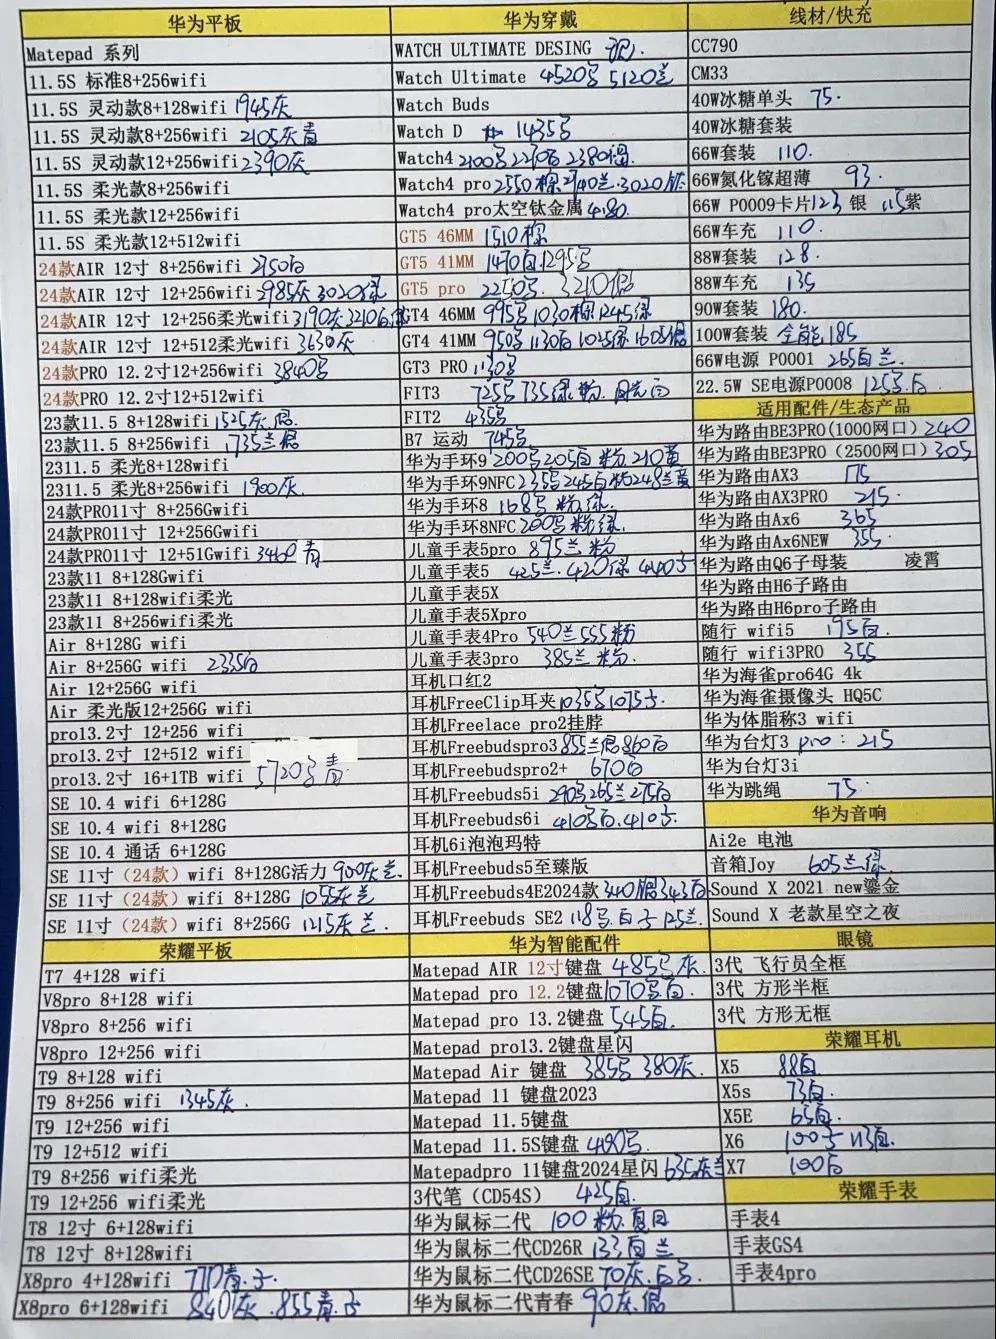 华为平板
Matepad 系列
11.5S 标准8+256wifi
11.5S 灵动款8+128wifi 1945灰
11.5S 灵动款8+256wifi 2105灰青
11.5S 灵动款12+256wifi 2390灰
11.5S 柔光款8+256wifi
11.5S 柔光款12+256wifi
11.5S 柔光款12+512wifi
24款AIR 12寸 8+256wifi 2750白
24款AIR 12寸 12+256wifi 2985灰 3020绿
24款AIR 12寸 12+256柔光wifi 3190灰 3210白
24款AIR 12寸 12+512柔光wifi 3630灰
24款PRO 12.2寸12+256wifi 3840
24款PRO 12.2寸12+512wifi
23款11.5 8+128wifi 1525灰
23款11.5 8+256wifi 1735兰
2311.5 柔光8+128wifi
2311.5 柔光8+256wifi 1900灰
24款PRO11寸 8+256Gwifi
24款PRO11寸 12+256Gwifi
24款PRO11寸 12+51Gwifi 3460 青
23款11 8+128Gwifi
23款11 8+128wifi柔光
23款11 8+256wifi柔光
Air 8+128G wifi
Air 8+256G wifi 2335白
Air 12+256G wifi
Air 柔光版12+256G wifi
pro13.2寸 12+256 wifi
pro13.2寸 12+512 wifi
pro13.2寸 16+1TB wifi 5720 青
SE 10.4 wifi 6+128G
SE 10.4 wifi 8+128G
SE 10.4 通话 6+128G
SE 11寸（24款）wifi 8+128G活力 900灰兰
SE 11寸（24款）wifi 8+128G 1055灰兰
SE 11寸（24款）wifi 8+256G 1215灰 兰
荣耀平板
T7 4+128 wifi
V8pro 8+128 wifi
V8pro 8+256 wifi
V8pro 12+256 wifi
T9 8+128 wifi
T9 8+256 wifi 1345灰
T9 12+256 wifi
T9 12+512 wifi
T9 8+256 wifi柔光
T9 12+256 wifi柔光
T8 12寸 6+128wifi
T8 12寸 8+128wifi
X8pro 4+128wifi 770青
X8pro 6+128wifi 840灰 855青
华为穿戴
WATCH ULTIMATE DESING
Watch Ultimate 4520 5120兰
Watch Buds
Watch D 1435
Watch4 2100 2270 2380
Watch4 pro 2550棕 2740兰 3020
Watch4 pro太空钛金属 4180
GT5 46MM 1510棕
GT5 41MM 1470白 1295
GT5 pro 2250 3210
GT4 46MM 995 1030棕 1245绿
GT4 41MM 950 1130白 1025绿 1605
GT3 PRO 1130
FIT3 725 735绿 粉 月光白
FIT2 435
B7 运动 745
华为手环9 200 205白 粉 210黄
华为手环9NFC 235 245白粉 248兰黄
华为手环8 168 粉绿
华为手环8NFC 200 粉绿
儿童手表5pro 895兰 粉
儿童手表5 425兰 420绿 440
儿童手表5X
儿童手表5Xpro
儿童手表4Pro 540兰 555粉
儿童手表3pro 385兰 粉
耳机口红2
耳机FreeClip耳夹 1035 1075
耳机Freelace pro2挂脖
耳机Freebudspro3 855兰 860白
耳机Freebudspro2+ 670白
耳机Freebuds5i 290 265兰 275白
耳机Freebuds6i 410 白 410
耳机6i泡泡玛特
耳机Freebuds5至臻版
耳机Freebuds4E2024款 340 343白
耳机Freebuds SE2 118 白 125兰
华为智能配件
Matepad AIR 12寸键盘 485 灰
Matepad pro 12.2键盘 1070 白
Matepad pro 13.2键盘 545白
Matepad pro13.2键盘星闪
Matepad Air 键盘 385 380灰
Matepad 11 键盘2023
Matepad 11.5键盘
Matepad 11.5S键盘 490
Matepadpro 11键盘2024星闪 635灰
3代笔（CD54S） 425白
华为鼠标二代 100 粉
华为鼠标二代CD26R 133白 兰
华为鼠标二代CD26SE 70灰 白
华为鼠标二代青春 90灰
线材/快充
CC790
CM33
40W冰糖单头 75
40W冰糖套装
66W套装 110
66W氮化镓超薄 93
66W P0009卡片 123 银 115紫
66W车充 110
88W套装 128
88W车充 135
90W套装 180
100W套装 全能185
66W电源 P0001 265白 兰
22.5W SE电源P0008 125 白
适用配件/生态产品
华为路由BE3PRO(1000网口) 240
华为路由BE3PRO（2500网口) 305
华为路由AX3 175
华为路由AX3PRO 215
华为路由Ax6 365
华为路由Ax6NEW 355
华为路由Q6子母装 凌霄
华为路由H6子路由
华为路由H6pro子路由
随行 wifi5 195白
随行 wifi3PRO 355
华为海雀pro64G 4k
华为海雀摄像头 HQ5C
华为体脂称3 wifi
华为台灯3 pro：215
华为台灯3i
华为跳绳 75
华为音响
Ai2e 电池
音箱Joy 605兰绿
Sound X 2021 new鎏金
Sound X 老款星空之夜
眼镜
3代 飞行员全框
3代 方形半框
3代 方形无框
荣耀耳机
X5 88白
X5s 73白
X5E 65白
X6 100 113白
X7 100白
荣耀手表
手表4
手表GS4
手表4pro